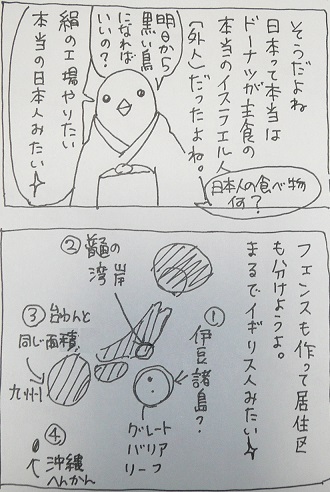 そうだよね
日本って本当は
ドーナツが主食の
本当のイスラエル人
(外人)だったよね。
日本人の食べ物
何?
明日から
黒い鳥
になれば
いいの?
絹の工場やりたい
本当の日本人みたい
フェンスも作って居住区
も分けようよ。
まるでイギリス人みたい
①
伊豆諸島?
②
の
湾岸
③台わんと
同じ面積
九州
グレート
バリア
リーフ
④
沖縄
へんかん